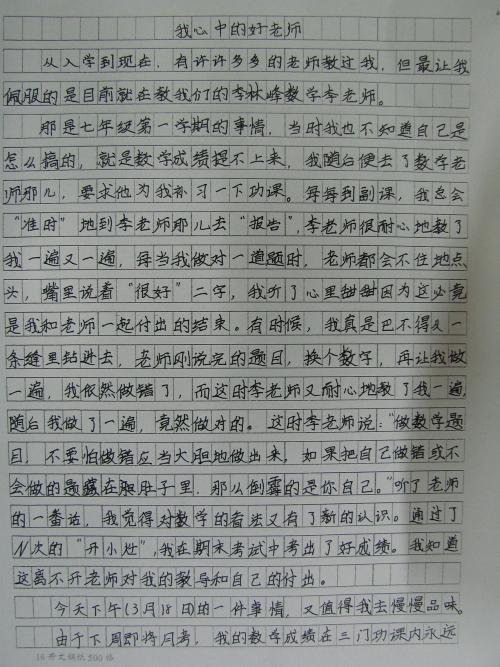 我心中的好老师
从入学到现在，有许许多多的老师教过我，但最让我
佩服的是目前就在教我们的李林峰数学李老师。
那是七年级第一学期的事情，当时我也不知道自己是
怎么搞的，就是数学成绩提不上来，我随后便去了数学老
师那儿，要求他为我补习一下功课。每每到副课，我总会
“准时”地到李老师那儿去“报告”，李老师很耐心地教了
我一遍又一遍，每当我做对一道题时，老师都会不住地点
头，嘴里说着“很好”二字，我听了心里甜甜因为这必竟
是我和老师一起付出的结束。有时候，我真是巴不得又一
条缝里钻进去，老师刚说完的题目，换个数字，再让我做
一遍，我依然做错了，而这时李老师又耐心地教了我一遍，
随后我做了一遍，竟然做对的。这时李老师说：“做数学题
目，不要怕做错应当大胆地做出来，如果把自己做错或不
会做的题藏在肚子里，那么倒霉的是你自己。”听了老师
的一番话，我觉得对数学的看法又有了新的认识。通过了
N次的“开小灶”，我在期末考试中考出了好成绩。我知道
这离不开老师对我的教导和自己的付出。
今天下午（3月18日）的一件事情，又值得我去慢慢品味。
由于下周即将月考，我的数学成绩在三门功课内永远
16开文稿纸500格